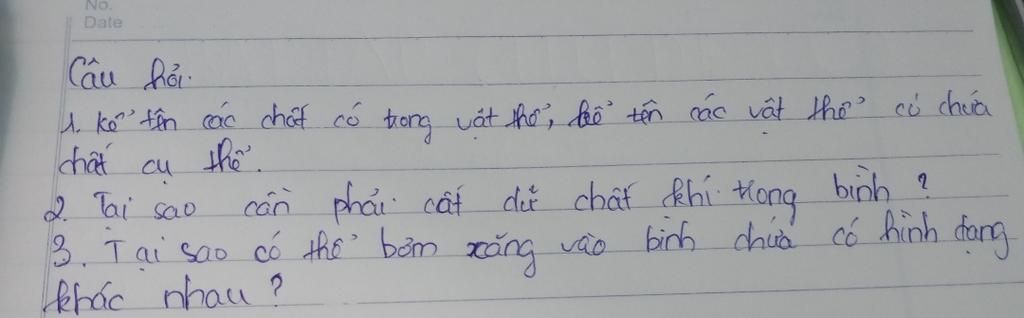 No.
Date
Câu hỏi.
1. Kể tên các chất có trong vật thể, kể tên các vật thể có chứa
chất cụ thể.
2. Tại sao cần phải cất dữ chất khí trong bình ?
3. Tại sao có thể bơm xăng vào bình chứa có hình dạng
khác nhau ?